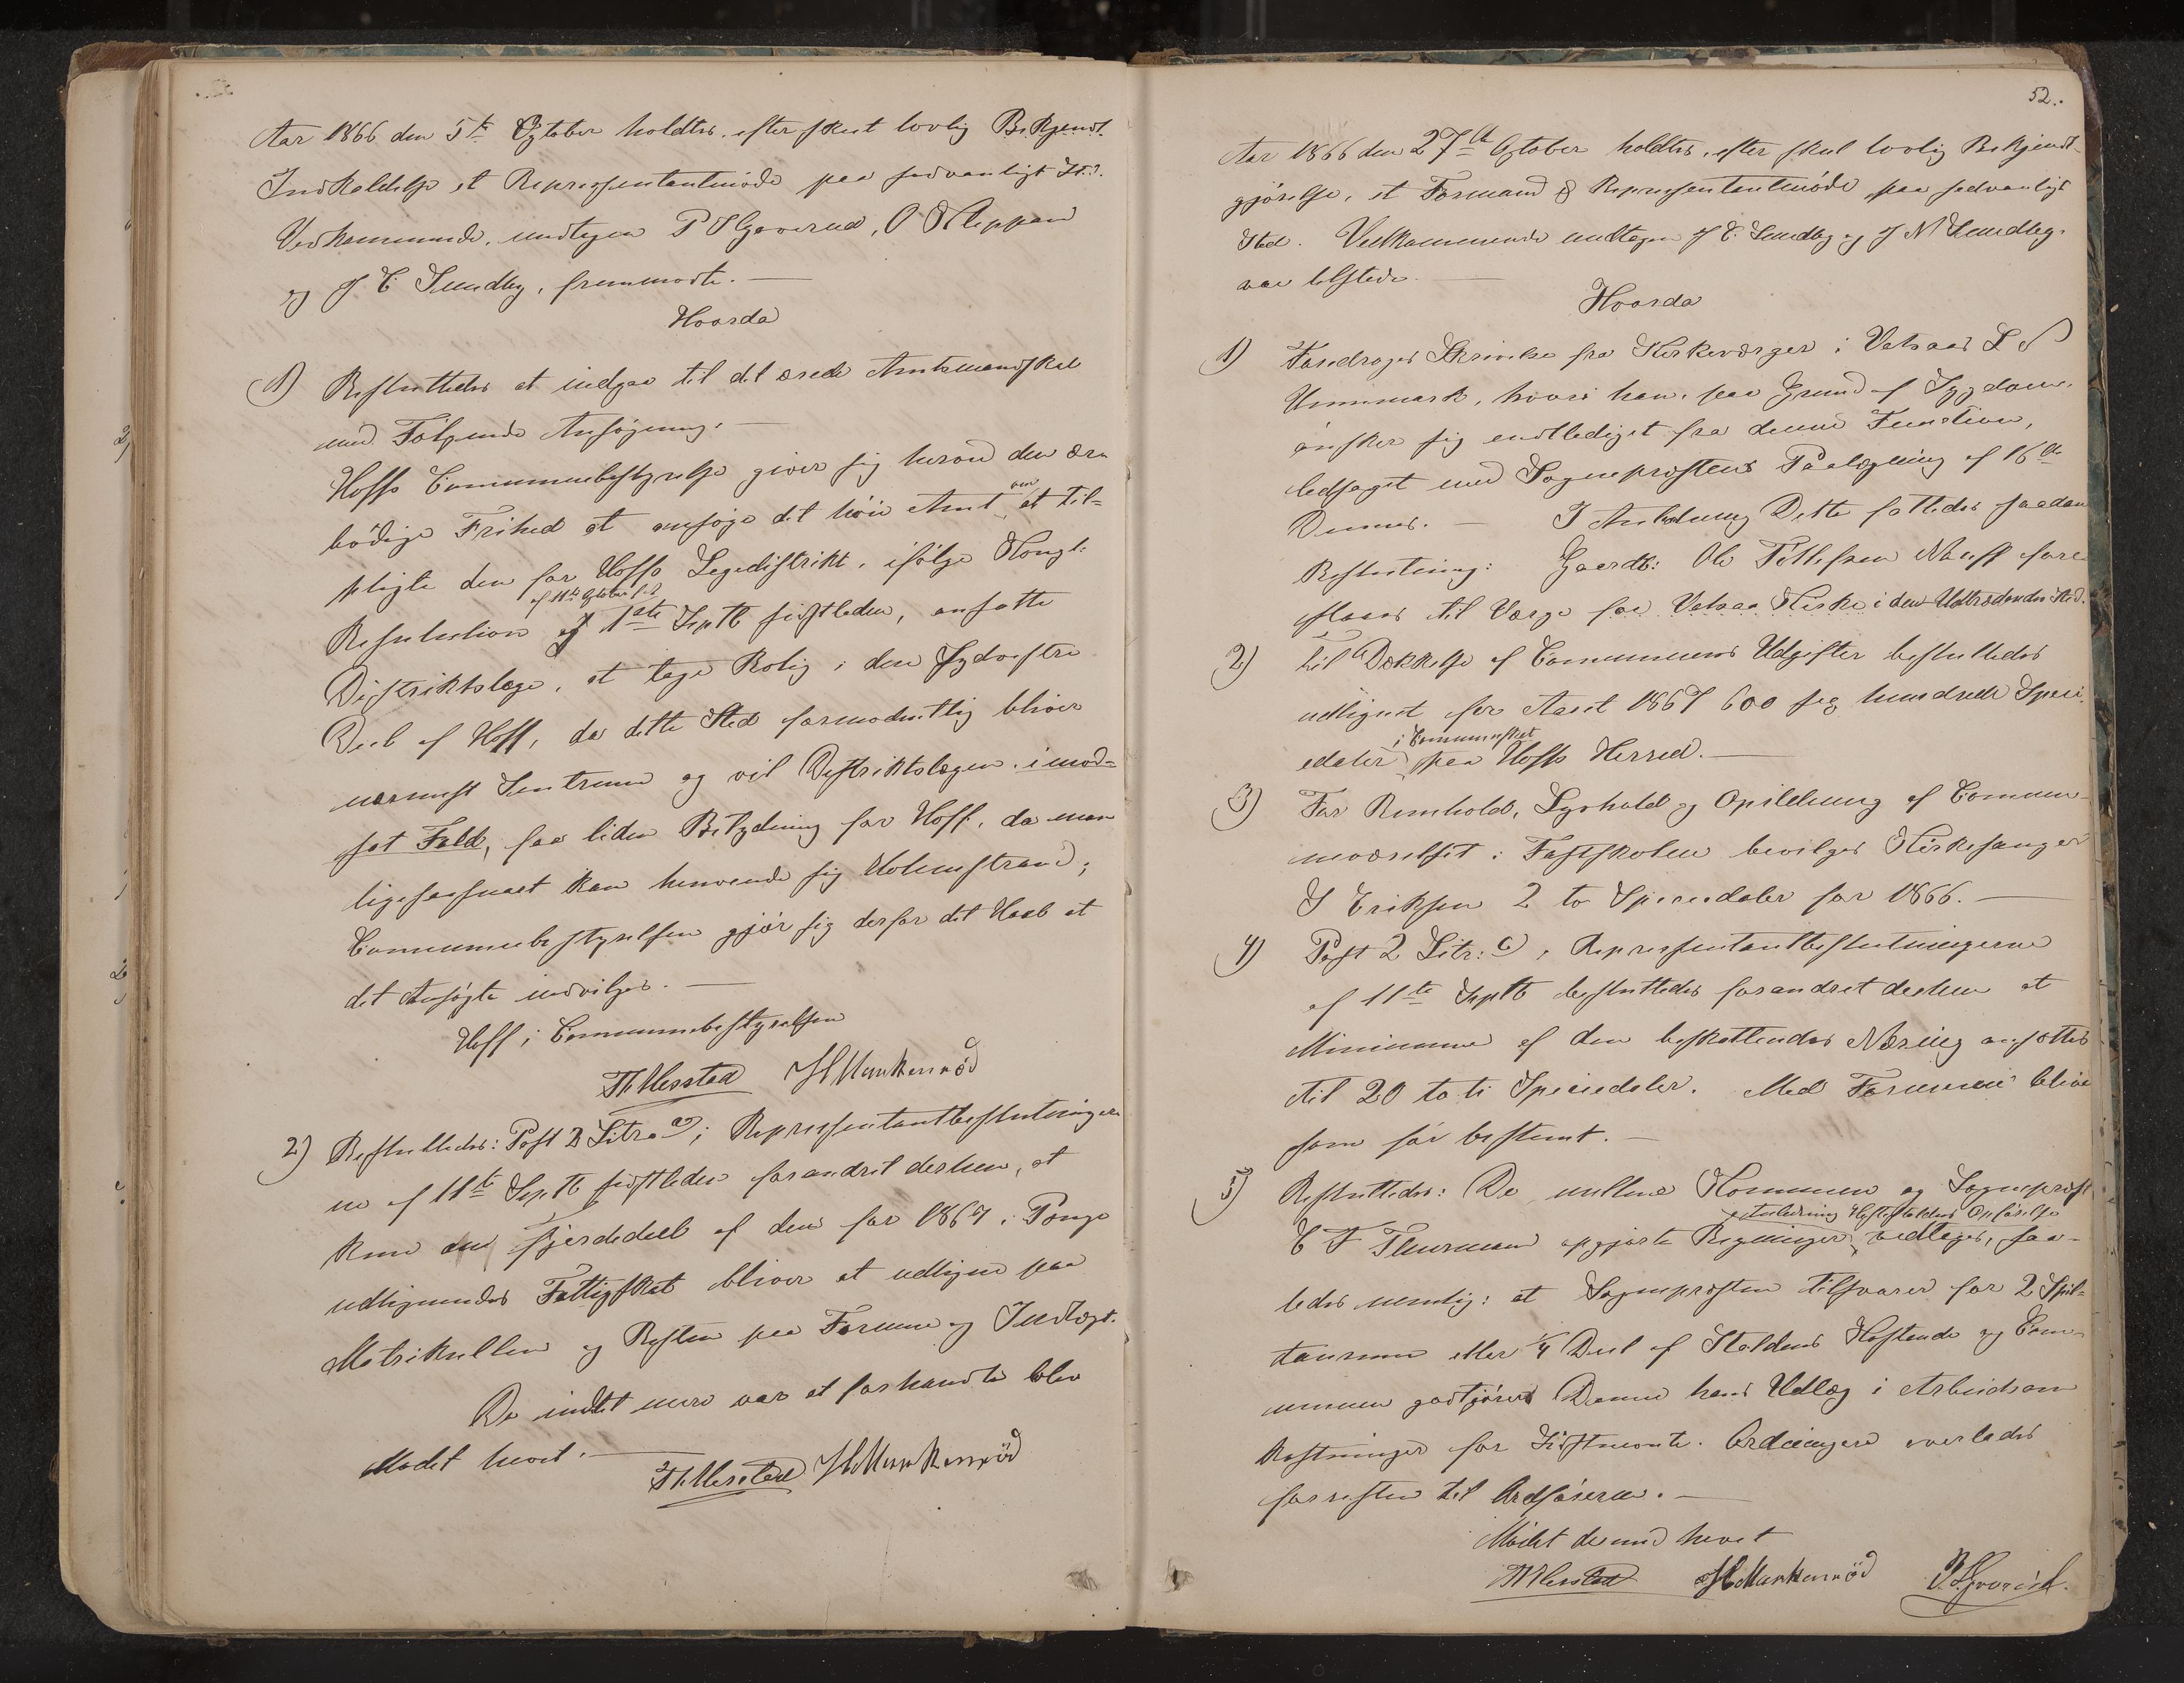 Aar 1866 den 5te Oktober holdtes, efter skeet lovlig Bekjendt.
Indkaldelse et Repræsentantmøde paa sædvanligt Sted.
Vedkommende, undtagen P Gjaverud, O Kleppan
og J C Sundby, fremmødte. —
Hvorda
1) Besluttedes at indgaa til det ærede Amtmandskab
med Følgende Ansøgning. —
Hoffs Communebestyrelse giver sig herved den ære
bødige Frihed at ansøge det høie Amt om at til=
pligte den for Hoffs Lægedistrikt, ifølge Kongl:
af 11te Oktober
Resolution af 1ste Septb sidstleden, ansatte
Distriktslæge, at tage Bolig i den sydvestre
Deel af Hoff, da dette Sted formodentlig bliver
nærmest Sentrum og vil Distriktslægen i mod=
sat Fald, faa liden Betydning for Hoff, da man
ligesaasnart kan henvende sig Holmestrand;
Communebestyrelsen gjør sig derfor det Haab at
det Ansøgte indvilges. —
Hoff i Communebestyrelsen
Th Hesstad H Markenrød
2) Besluttedes: Post 2 Litra c, i Repræsentantbeslutninger
ne af 11te Septb sidstleden forandret derhen, at
kun een fjerdedeel af den for 1867 i Penge
udlignendes Fattigskat bliver at udligne paa
Matrikullen og Resten paa Formue og Indtægt.
Da indtet mere var at forhandle blev
Mødet hævet. —
Th Hesstad H Markenrød
52.
Aar 1866 den 27de Oktober holdtes, efter skeet lovlig Bekjendt-
gjørelse, et Formand & Repræsentantmøde paa sædvanligt
Sted. Vedkommende undtagen J C Sundby og J N Sundby.
var tilstede. —
Hvorda
1) Foredroges Skrivelse fra Kirkeværger i Vatsaas L N
Unnmark, hvori han, paa Grund af Sygdom,
ønsker sig entlediget fra denne Function,
ledsaget med Sognepræstens Paategning af 16de
Dennes. — I Anledning Dette fattedes saadan
Beslutning: Gaardb: Ole Tollefsen Næss fore
slaaes til Værge for Vatsaa Kirke i den Udtrædendes Sted.
2) Til Dækkelse af Communens Udgifter besluttedes
udlignet for Aaret 1867 600 sex hundrede Speci
i Communeskat
edaler paa Hoffs Herred. —
3) For Renhold, Lyshold og Opildning af Commu-
neværelset i Fastskolen bevilges Kirkesanger
S Eriksen 2 to Speciedaler for 1866. —
4) Post 2 Litr: c, i Repræsentantbeslutningerne
af 11te Septb besluttedes forandret derhen at
Minimum af den beskattendes Næring ansættes
til 20 to ti Speciedaler. Med Formue blive
som før bestemt. —
5) Besluttedes: De mellem Kommunen og Sognepræst
i Anledning Hestestaldens Opførelse
C F Thurmann opgjorte Regninger vedtages, saa-
ledes nemlig: at Sognepræsten tilsvarer for 2 Spil=
taurum eller 1/4 Deel af Staldens Kostende og Com-
munen godtgjøres Denne hans Udlæg i Arbeidsom
kostninger for Sidstnævnte. Ordningen overlades
forresten til Ordføreren. —
Mødet dermed hævet
Th Hesstad H Markenrød